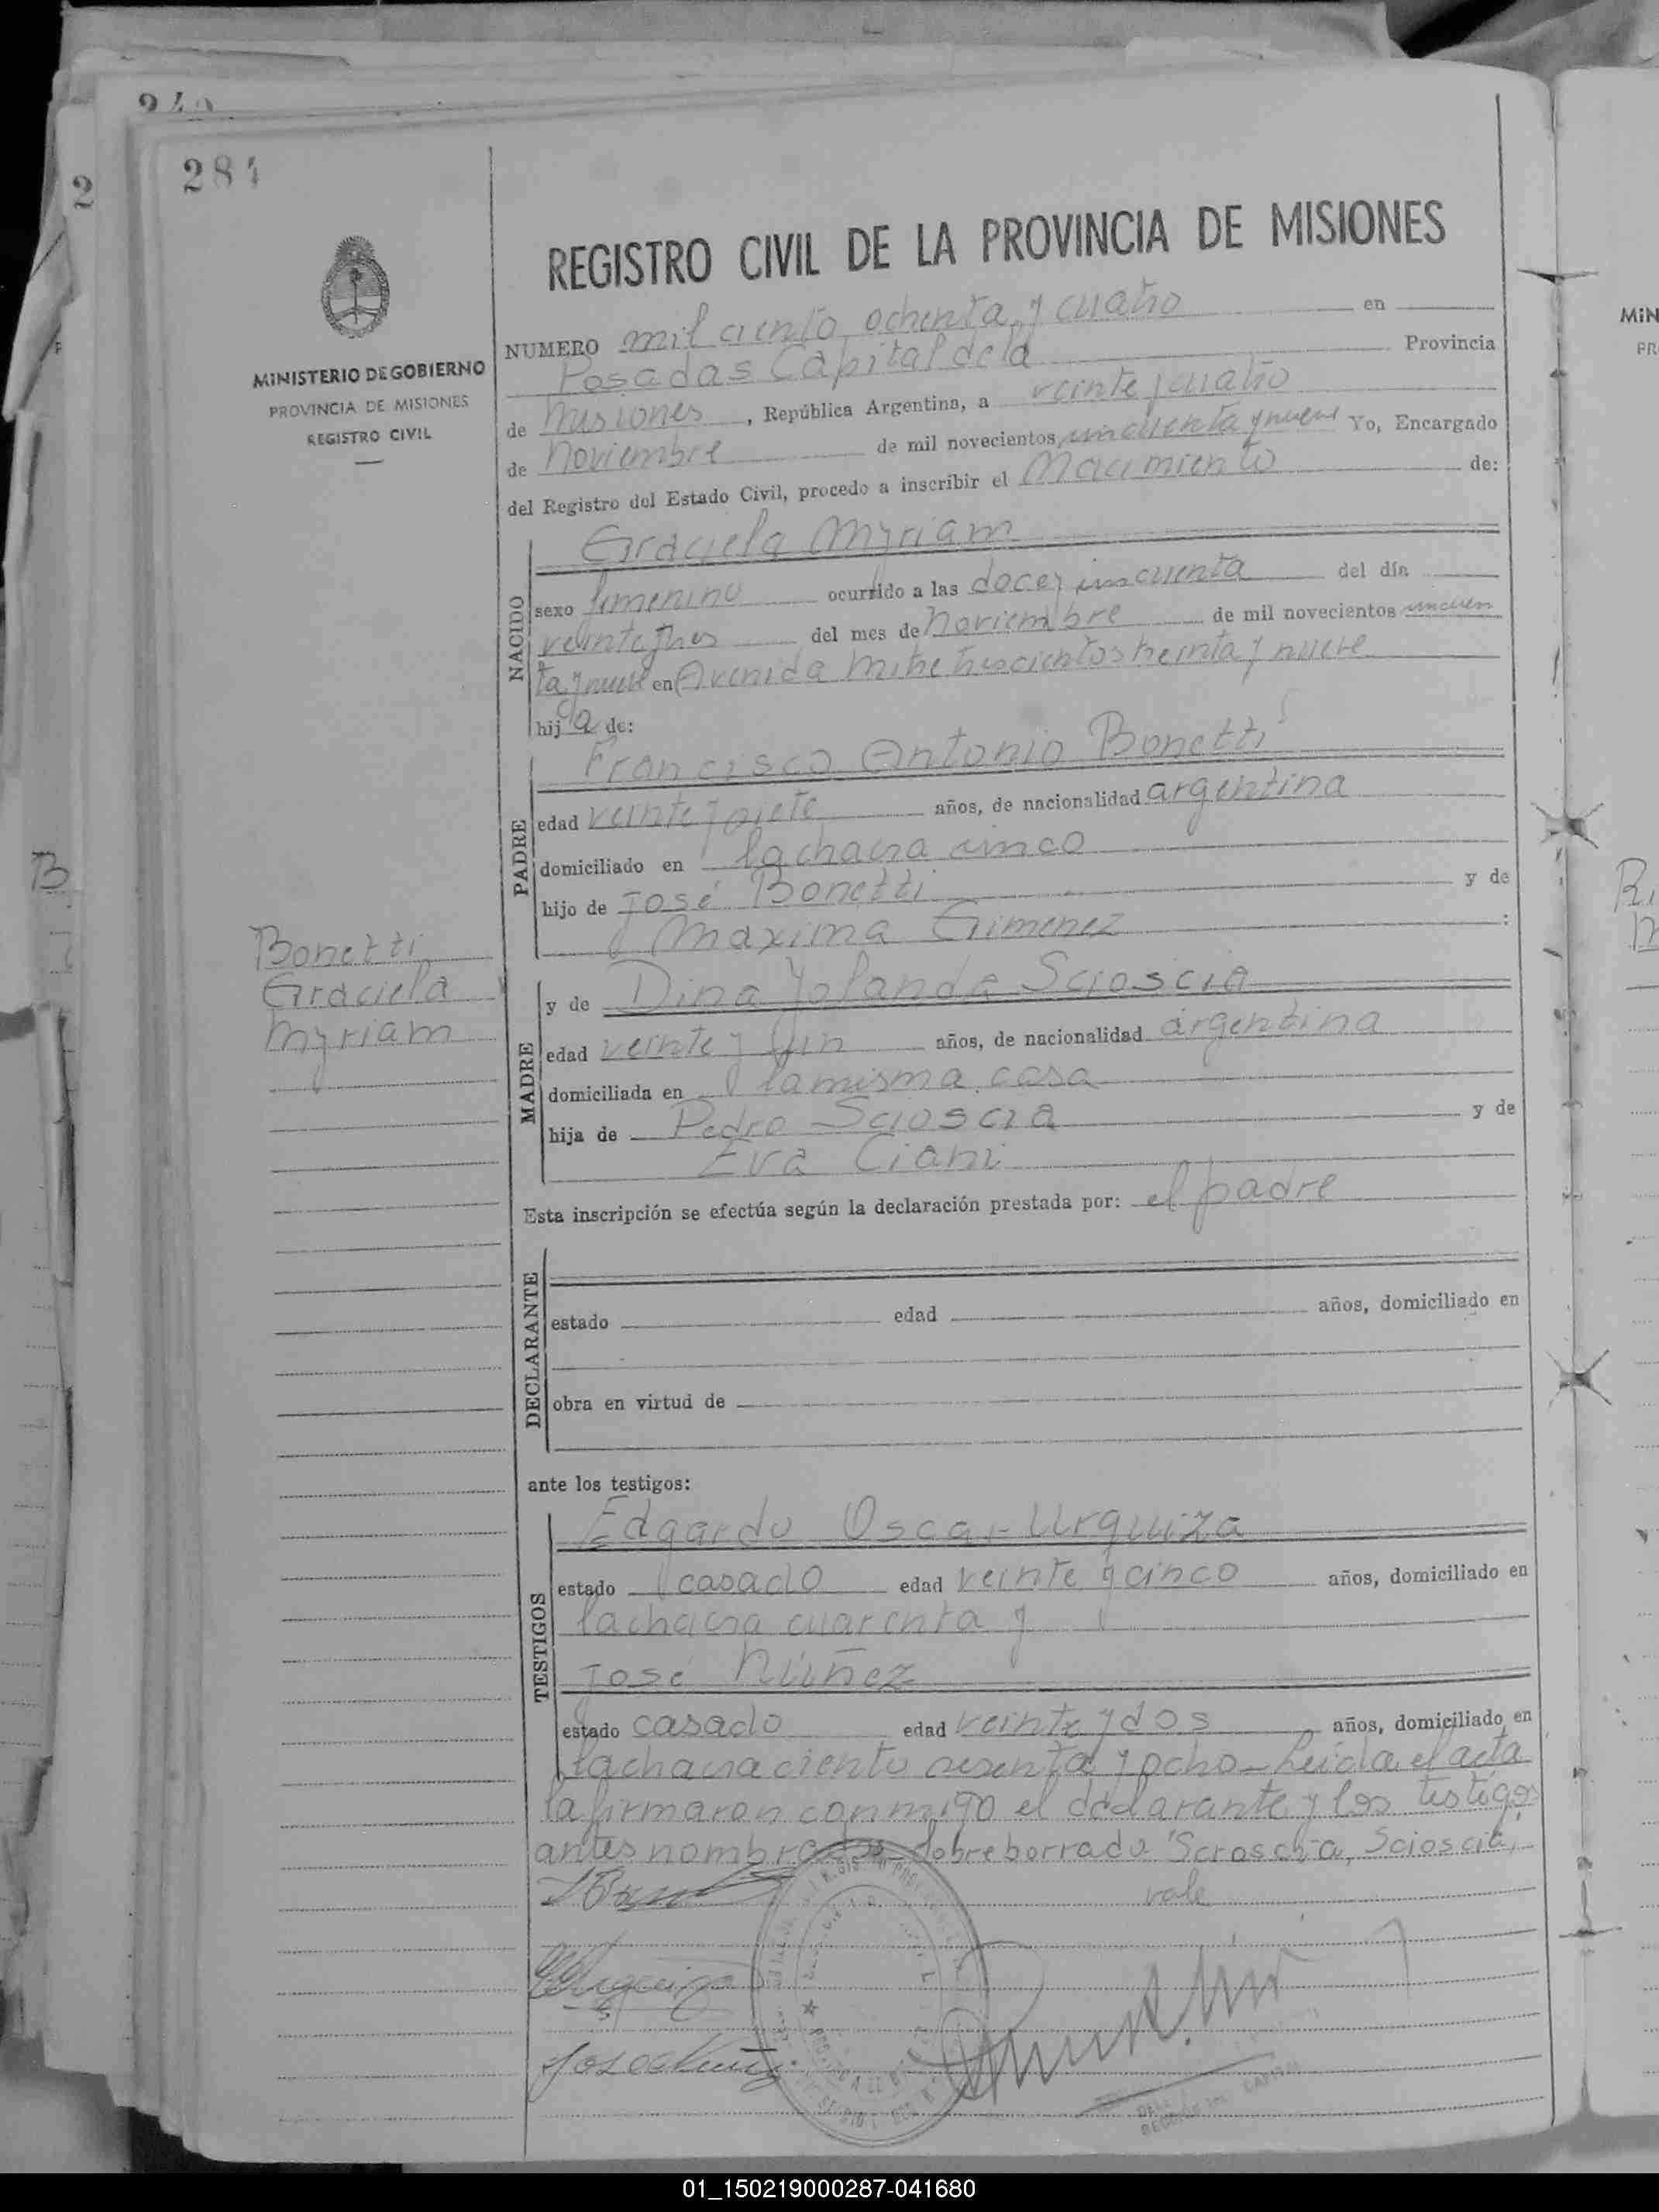 284
MINISTERIO DE GOBIERNO
PROVINCIA DE MISIONES
REGISTRO CIVIL
REGISTRO CIVIL DE LA PROVINCIA DE MISIONES
NUMERO mil ciento ochenta y cuatro en
Posadas Capital de la Provincia
de Misiones, República Argentina, a veinte y cuatro
de Noviembre de mil novecientos cincuenta y nueve Yo, Encargado
del Registro del Estado Civil, procedo a inscribir el Nacimiento de:
NACIDO
Graciela Myriam
sexo femenino ocurrido a las doce y cincuenta del día
veinte y tres del mes de noviembre de mil novecientos cincuen
ta y nueve en Avenida Mitre trescientos treinta y nueve
hija de:
PADRE
Francisco Antonio Bonetti
edad veinte y siete años, de nacionalidad argentina
domiciliado en la chacra cinco
hijo de José Bonetti y de
Maxima Gimenez :
Bonetti
Graciela
Myriam
MADRE
y de Dina Yolanda Scioscia
edad veinte y un años, de nacionalidad argentina
domiciliada en la misma casa
hija de Pedro Scioscia y de
Eva Ciani
Esta inscripción se efectúa según la declaración prestada por: el padre
DECLARANTE
estado edad años, domiciliado en
obra en virtud de
ante los testigos:
TESTIGOS
Edgardo Oscar Urquiza
estado casado edad veinte y cinco años, domiciliado en
la chacra cuarenta y
José Núñez
estado casado edad veinte y dos años, domiciliado en
la chacra ciento sesenta y ocho - Leída el acta
la firmaron conmigo el declarante y los testigos
antes nombrados - sobre borrado "Scioscia, Scioscia,"
vale
01_150219000287-041680